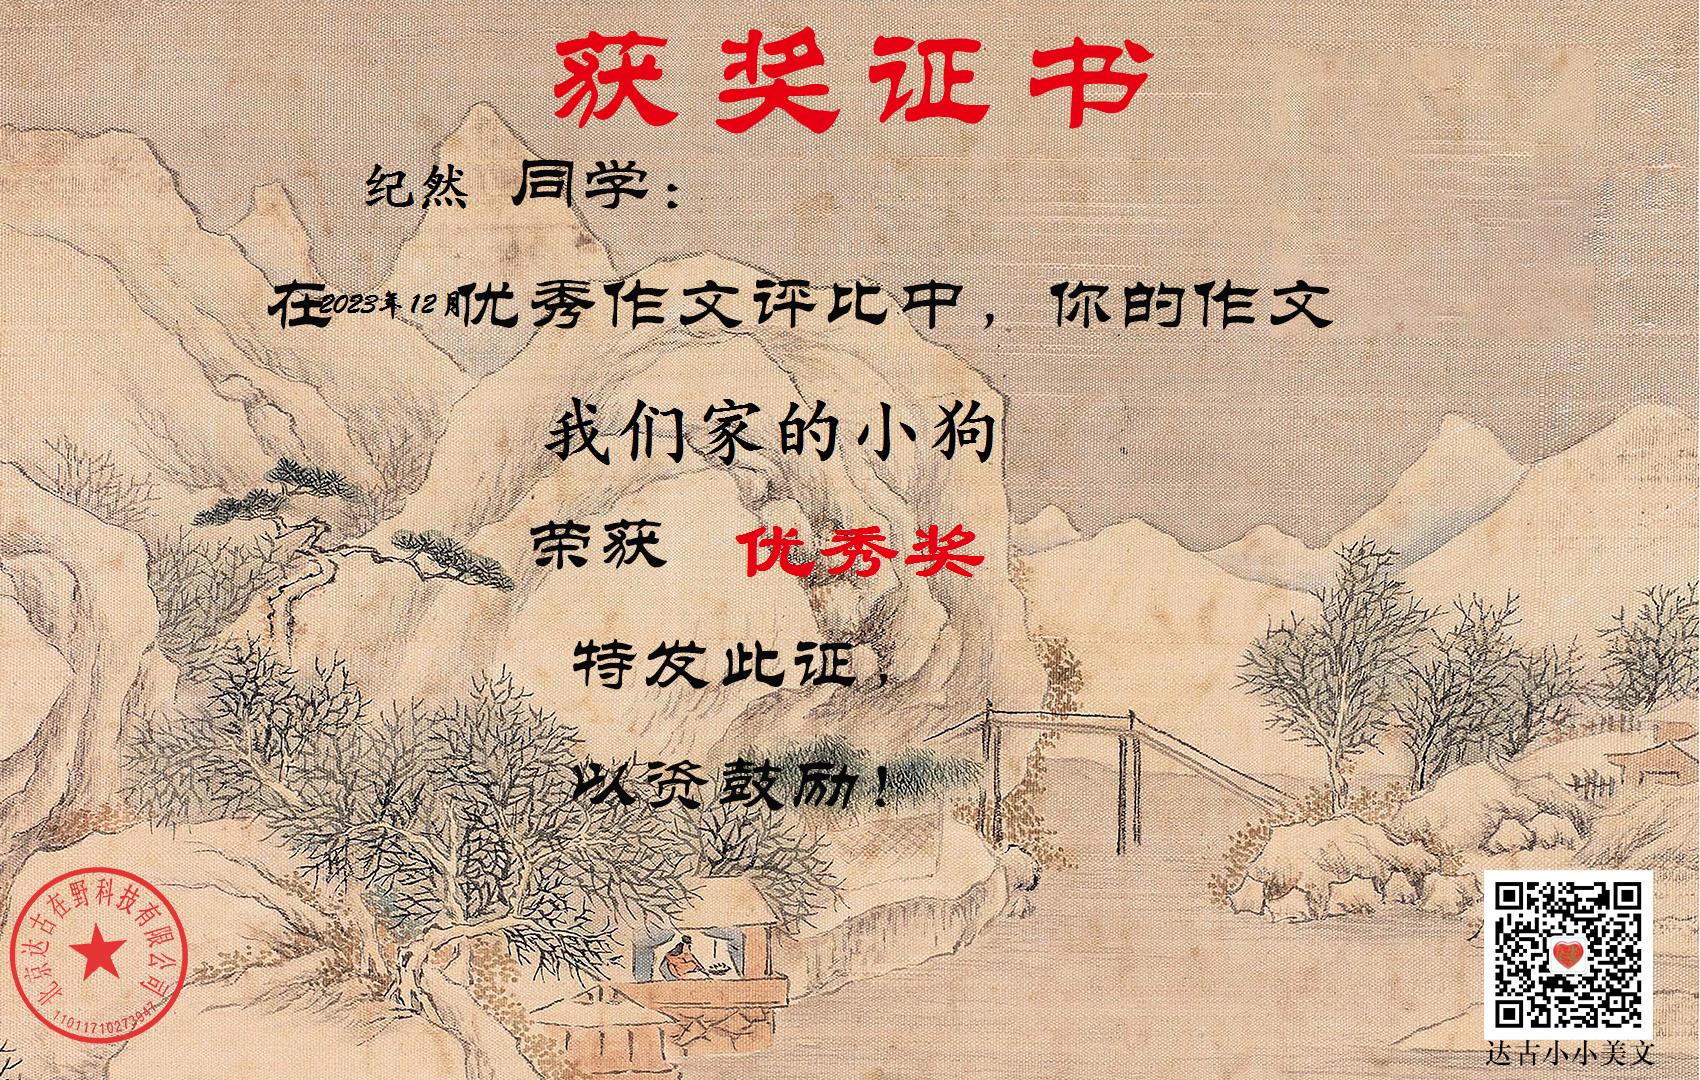 获奖证书
纪然 同学：
在2023年12月优秀作文评比中，你的作文
我们家的小狗
荣获 优秀奖
特发此证，
以资鼓励！
北京达古在野科技有限公司
11011710273947
达古小小美文